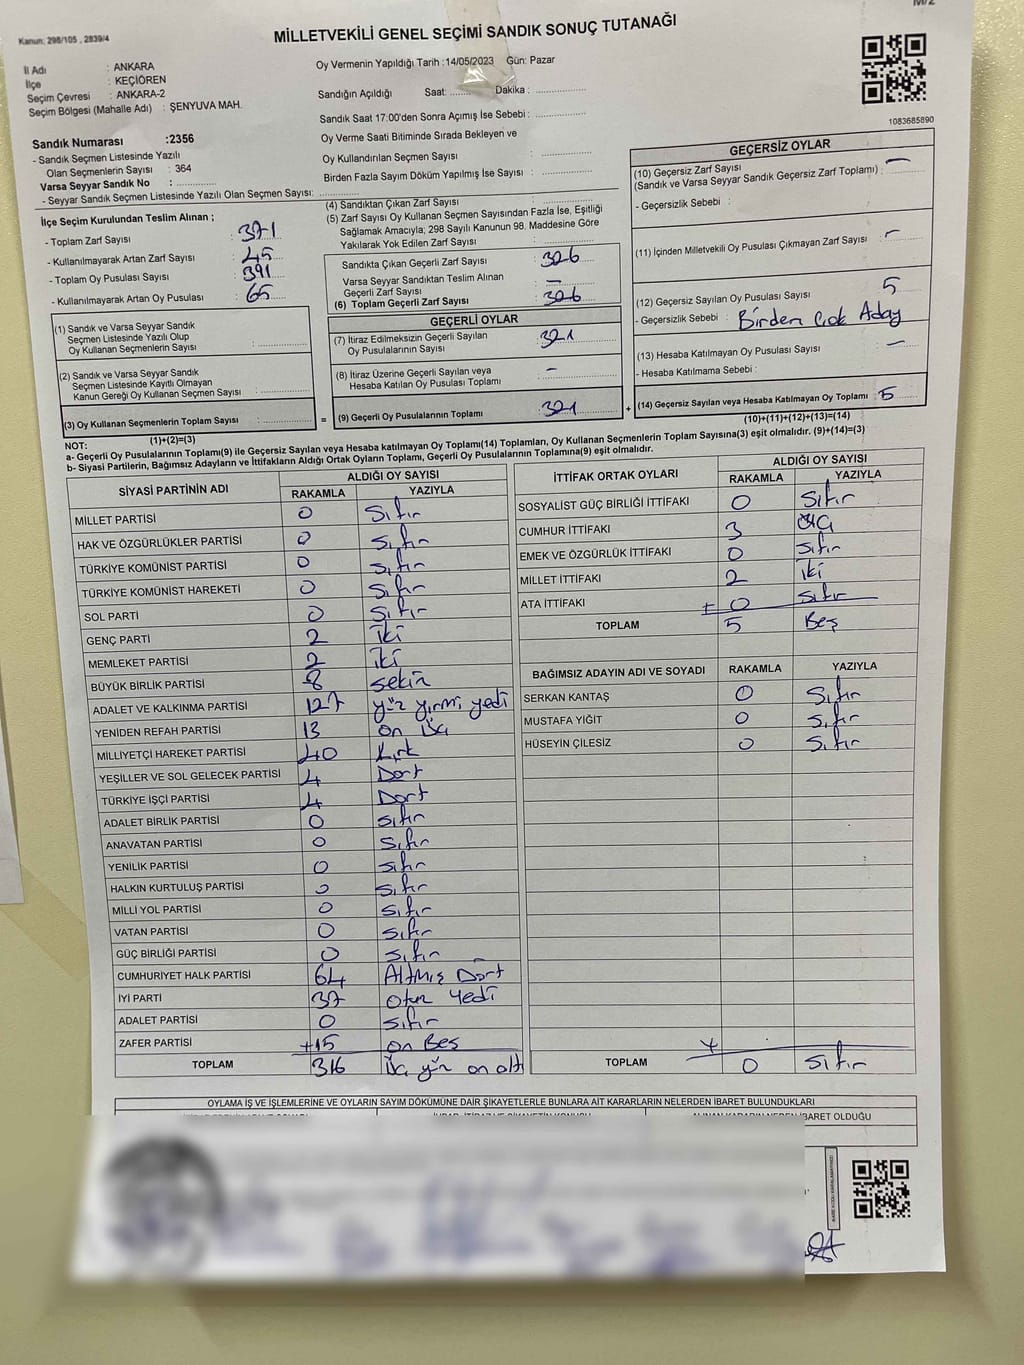 M/2
Kanun: 298/105 , 2839/4
MİLLETVEKİLİ GENEL SEÇİMİ SANDIK SONUÇ TUTANAĞI
İl Adı : ANKARA
İlçe : KEÇİÖREN
Seçim Çevresi : ANKARA-2
Seçim Bölgesi (Mahalle Adı) : ŞENYUVA MAH.
Sandık Numarası :2356
- Sandık Seçmen Listesinde Yazılı
Olan Seçmenlerin Sayısı : 364
Varsa Seyyar Sandık No :
- Seyyar Sandık Seçmen Listesinde Yazılı Olan Seçmen Sayısı:
Oy Vermenin Yapıldığı Tarih :14/05/2023 Gün: Pazar
Sandığın Açıldığı Saat: Dakika :
Sandık Saat 17:00'den Sonra Açımış İse Sebebi :
Oy Verme Saati Bitiminde Sırada Bekleyen ve
Oy Kullandırılan Seçmen Sayısı :
Birden Fazla Sayım Döküm Yapılmış İse Sayısı :
1083685890
İlçe Seçim Kurulundan Teslim Alınan ;
- Toplam Zarf Sayısı : 371
- Kullanılmayarak Artan Zarf Sayısı : 45
- Toplam Oy Pusulası Sayısı : 391
- Kullanılmayarak Artan Oy Pusulası : 65
(1) Sandık ve Varsa Seyyar Sandık
Seçmen Listesinde Yazılı Olup
Oy Kullanan Seçmenlerin Sayısı :
(2) Sandık ve Varsa Seyyar Sandık
Seçmen Listesinde Kayıtlı Olmayan
Kanun Gereği Oy Kullanan Seçmen Sayısı :
(3) Oy Kullanan Seçmenlerin Toplam Sayısı :
(1)+(2)=(3)
(4) Sandıktan Çıkan Zarf Sayısı :
(5) Zarf Sayısı Oy Kullanan Seçmen Sayısından Fazla İse, Eşitliği
Sağlamak Amacıyla; 298 Sayılı Kanunun 98. Maddesine Göre
Yakılarak Yok Edilen Zarf Sayısı :
Sandıkta Çıkan Geçerli Zarf Sayısı : 326
Varsa Seyyar Sandıktan Teslim Alınan
Geçerli Zarf Sayısı : -
(6) Toplam Geçerli Zarf Sayısı : 326
GEÇERLİ OYLAR
(7) İtiraz Edilmeksizin Geçerli Sayılan
Oy Pusulalarının Sayısı : 321
(8) İtiraz Üzerine Geçerli Sayılan veya
Hesaba Katılan Oy Pusulası Toplamı : -
= (9) Geçerli Oy Pusulalarının Toplamı : 321
GEÇERSİZ OYLAR
(10) Geçersiz Zarf Sayısı : -
(Sandık ve Varsa Seyyar Sandık Geçersiz Zarf Toplamı)
- Geçersizlik Sebebi :
(11) İçinden Milletvekili Oy Pusulası Çıkmayan Zarf Sayısı : -
(12) Geçersiz Sayılan Oy Pusulası Sayısı : 5
- Geçersizlik Sebebi : Birden Çok Aday
(13) Hesaba Katılmayan Oy Pusulası Sayısı : -
- Hesaba Katılmama Sebebi :
+ (14) Geçersiz Sayılan veya Hesaba Katılmayan Oy Toplamı : 5
(10)+(11)+(12)+(13)=(14)
NOT:
a- Geçerli Oy Pusulalarının Toplamı(9) ile Geçersiz Sayılan veya Hesaba katılmayan Oy Toplamı(14) Toplamları, Oy Kullanan Seçmenlerin Toplam Sayısına(3) eşit olmalıdır. (9)+(14)=(3)
b- Siyasi Partilerin, Bağımsız Adayların ve İttifakların Aldığı Ortak Oyların Toplamı, Geçerli Oy Pusulalarının Toplamına(9) eşit olmalıdır.
SİYASİ PARTİNİN ADI ALDIĞI OY SAYISI
RAKAMLA YAZIYLA
MİLLET PARTİSİ 0 Sıfır
HAK VE ÖZGÜRLÜKLER PARTİSİ 0 Sıfır
TÜRKİYE KOMÜNİST PARTİSİ 0 Sıfır
TÜRKİYE KOMÜNİST HAREKETİ 0 Sıfır
SOL PARTİ 0 Sıfır
GENÇ PARTİ 2 İki
MEMLEKET PARTİSİ 2 İki
BÜYÜK BİRLİK PARTİSİ 8 Sekiz
ADALET VE KALKINMA PARTİSİ 127 yüz yirmi yedi
YENİDEN REFAH PARTİSİ 13 on üç
MİLLİYETÇİ HAREKET PARTİSİ 40 Kırk
YEŞİLLER VE SOL GELECEK PARTİSİ 4 Dört
TÜRKİYE İŞÇİ PARTİSİ 4 Dört
ADALET BİRLİK PARTİSİ 0 Sıfır
ANAVATAN PARTİSİ 0 Sıfır
YENİLİK PARTİSİ 0 Sıfır
HALKIN KURTULUŞ PARTİSİ 0 Sıfır
MİLLİ YOL PARTİSİ 0 Sıfır
VATAN PARTİSİ 0 Sıfır
GÜÇ BİRLİĞİ PARTİSİ 0 Sıfır
CUMHURİYET HALK PARTİSİ 64 Altmış Dört
İYİ PARTİ 37 otuz yedi
ADALET PARTİSİ 0 Sıfır
ZAFER PARTİSİ +15 on Beş
TOPLAM 316 Üç yüz on altı
İTTİFAK ORTAK OYLARI ALDIĞI OY SAYISI
RAKAMLA YAZIYLA
SOSYALİST GÜÇ BİRLİĞİ İTTİFAKI 0 Sıfır
CUMHUR İTTİFAKI 3 üç
EMEK VE ÖZGÜRLÜK İTTİFAKI 0 Sıfır
MİLLET İTTİFAKI 2 İki
ATA İTTİFAKI + 0 Sıfır
TOPLAM 5 Beş
BAĞIMSIZ ADAYIN ADI VE SOYADI RAKAMLA YAZIYLA
SERKAN KANTAŞ 0 Sıfır
MUSTAFA YİĞİT 0 Sıfır
HÜSEYİN ÇİLESİZ 0 Sıfır
+
TOPLAM 0 Sıfır
OYLAMA İŞ VE İŞLEMLERİNE VE OYLARIN SAYIM DÖKÜMÜNE DAİR ŞİKAYETLERLE BUNLARA AİT KARARLARIN NELERDEN İBARET BULUNDUKLARI
İBARET OLDUĞU